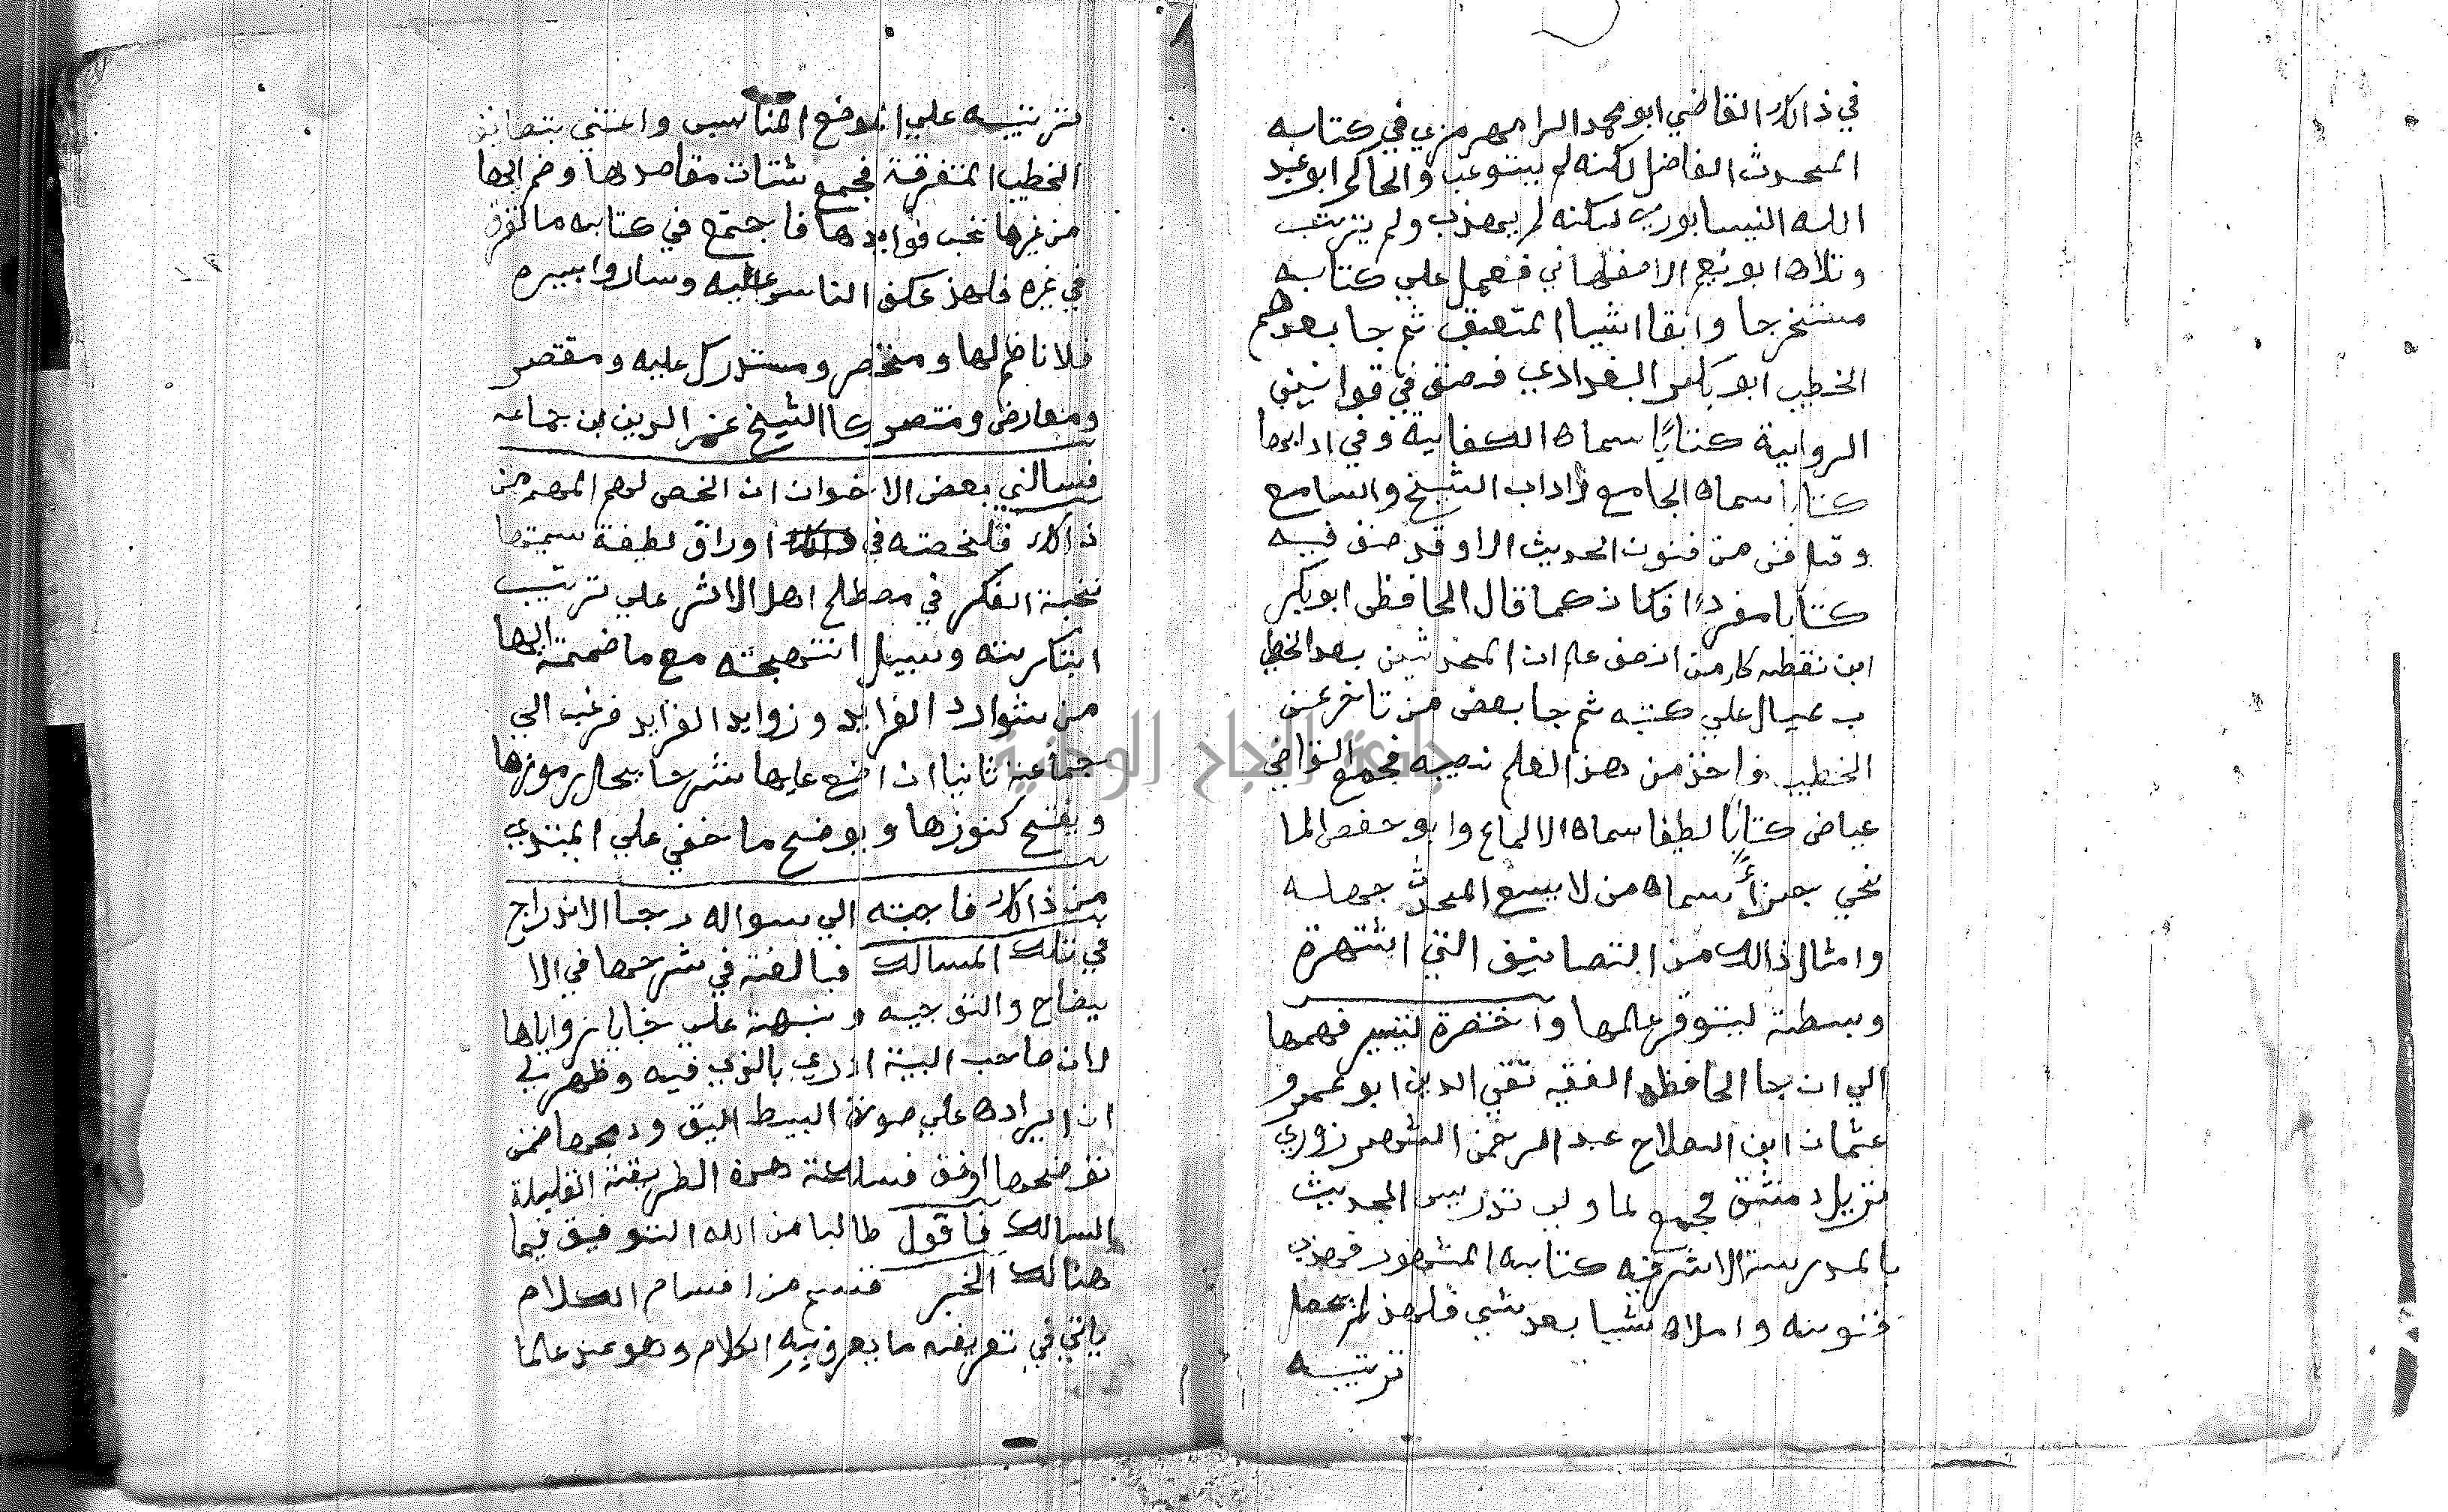 في ذالك القاضي ابو محمد الرامهرمزي في كتابه
المحدث الفاضل لكنه لم يستوعب والحاكم ابو عبد
الله النيسابوري لكنه لم يهذب ولم يترتب
وتلاه ابو نعيم الاصفهاني فعمل علي كتابه
مستخرجا وابقا اشيا المتعقب ثم جا بعدهم
الخطيب ابو بكر البغدادي فصنف في قوانين
الرواية كتابًا سماه الكفاية وفي ادابها
كتابا سماه الجامع لاداب الشيخ والسامع
وقل فن من فنون الحديث الا وقد صنف فيه
كتابا مفردًا فكان كما قال الحافظ ابو بكر
ابن نقطه كل من انصف علم ان المحدثين بعد الخطي
ب عيال علي كتبه ثم جا بعض من تاخر عن
الخطيب فاخذ من هذا العلم نصيبه فجمع القاضي
عياض كتابًا لطيفا سماه الالماع وابو حفص الميا
نجي جزأً سماه من لا يسع المحدث جهله
وامثال ذالك من التصانيف التي اشتهرة
وبسطة ليتوفر علمها واختصرة ليتيسر فهمها
الي ان جا الحافظ الفقيه تقي الدين ابو عمرو
عثمان ابن الصلاح عبد الرحمن الشهرزوري
نزيل دمشق فجمع لما ولي تدريس الحديث
بالمدرسة الاشرفيه كتابه المشهور فهذب
فنونه واملاه شيا بعد شي فلهذا لم يحصل
ترتيبه
ترتيبه علي الموضع المناسب واعتني بتصانيف
الخطيب المتفرقة فجمع شتات مقاصدها وضم اليها
من غيرها نخب فوايدها فاجتمع في كتابه ما تفرق
في غيره فلهذ عكف الناس عليه وساروا بسيره
فلا ناظم لها ومختصر ومستدرك عليه ومقتصر
ومعارض ومنتصر كا الشيخ عز الدين بن جماعه
فسالني بعض الاخوان ان الخص لهم المهم من
ذالك فلخصته في اوراق لطيفة سميتها
نخبة الفكر في مصطلح اهل الاثر علي ترتيب
ابتكرته وسبيل انتهجته مع ما ضممته اليها
من شوارد الفرايد وزوايد الفوايد فرغب الي
جماعة ثانيا ان اضع عليها شرحا يحل رموزها
ويفتح كنوزها ويوضح ما خفي علي المبتدي
من ذالك فاجبته الي سواله رجا الاندراج
في تلك المسالك فبالغة في شرحها في الا
يضاح والتوجيه ونبهة علي خبايا زواياها
لان صاحب البيت ادري بالذي فيه وظهر لي
ان ايراده علي صورة البسط اليق ودمجها ضمن
توضيحها اوفق فسلكة هذه الطريقة القليلة
السالك فاقول طالبا من الله التوفيق فيما
هنالك الخبر قسم من اقسام الكلام
ياتي في تعريفه ما يعرف به الكلام وهو عند علما